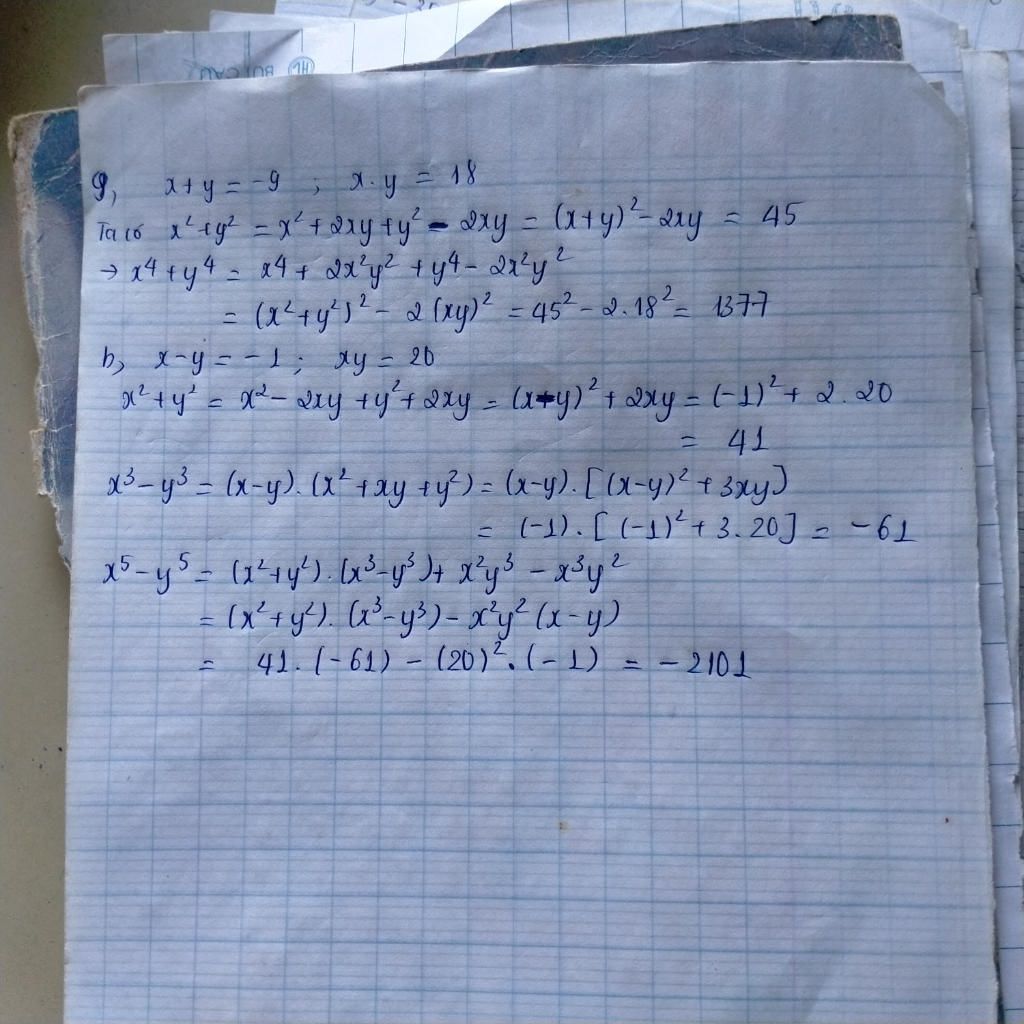 a, x+y = -9 ; x.y = 18
Ta có x²+y² = x²+2xy+y² - 2xy = (x+y)² - 2xy = 45
→ x⁴+y⁴ = x⁴+ 2x²y² + y⁴ - 2x²y²
= (x²+y²)² - 2(xy)² = 45² - 2.18² = 1377
b, x-y = -1 ; xy = 20
x²+y² = x² - 2xy + y² + 2xy = (x-y)² + 2xy = (-1)² + 2.20
= 41
x³-y³ = (x-y).(x²+xy+y²) = (x-y).[(x-y)²+3xy]
= (-1).[(-1)²+3.20] = -61
x⁵-y⁵ = (x²+y²).(x³-y³)+ x²y³ - x³y²
= (x²+y²).(x³-y³) - x²y²(x-y)
= 41.(-61) - (20)².(-1) = -2101